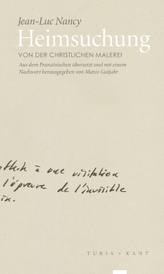 Jean-Luc Nancy
Heimsuchung
VON DER CHRISTLICHEN MALEREI
Aus dem Französischen übersetzt und mit einem
Nachwort herausgegeben von Marco Gutjahr
à une visitation
l'épreuve de l'invisible
in.
TURIA + KANT